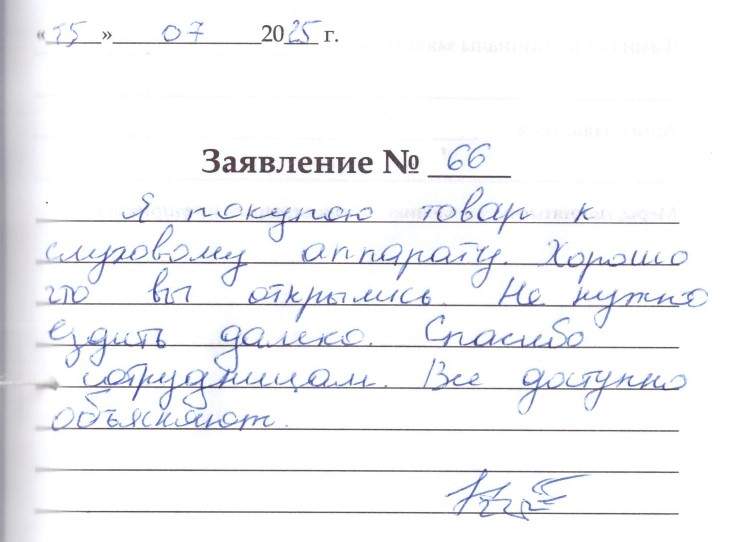 «15» 07 2025 г.
Заявление № 66
Я покупаю товар к
слуховому аппарату. Хорошо
что вы открылись. Не нужно
ездить далеко. Спасибо
сотрудницам. Все доступно
объясняют.